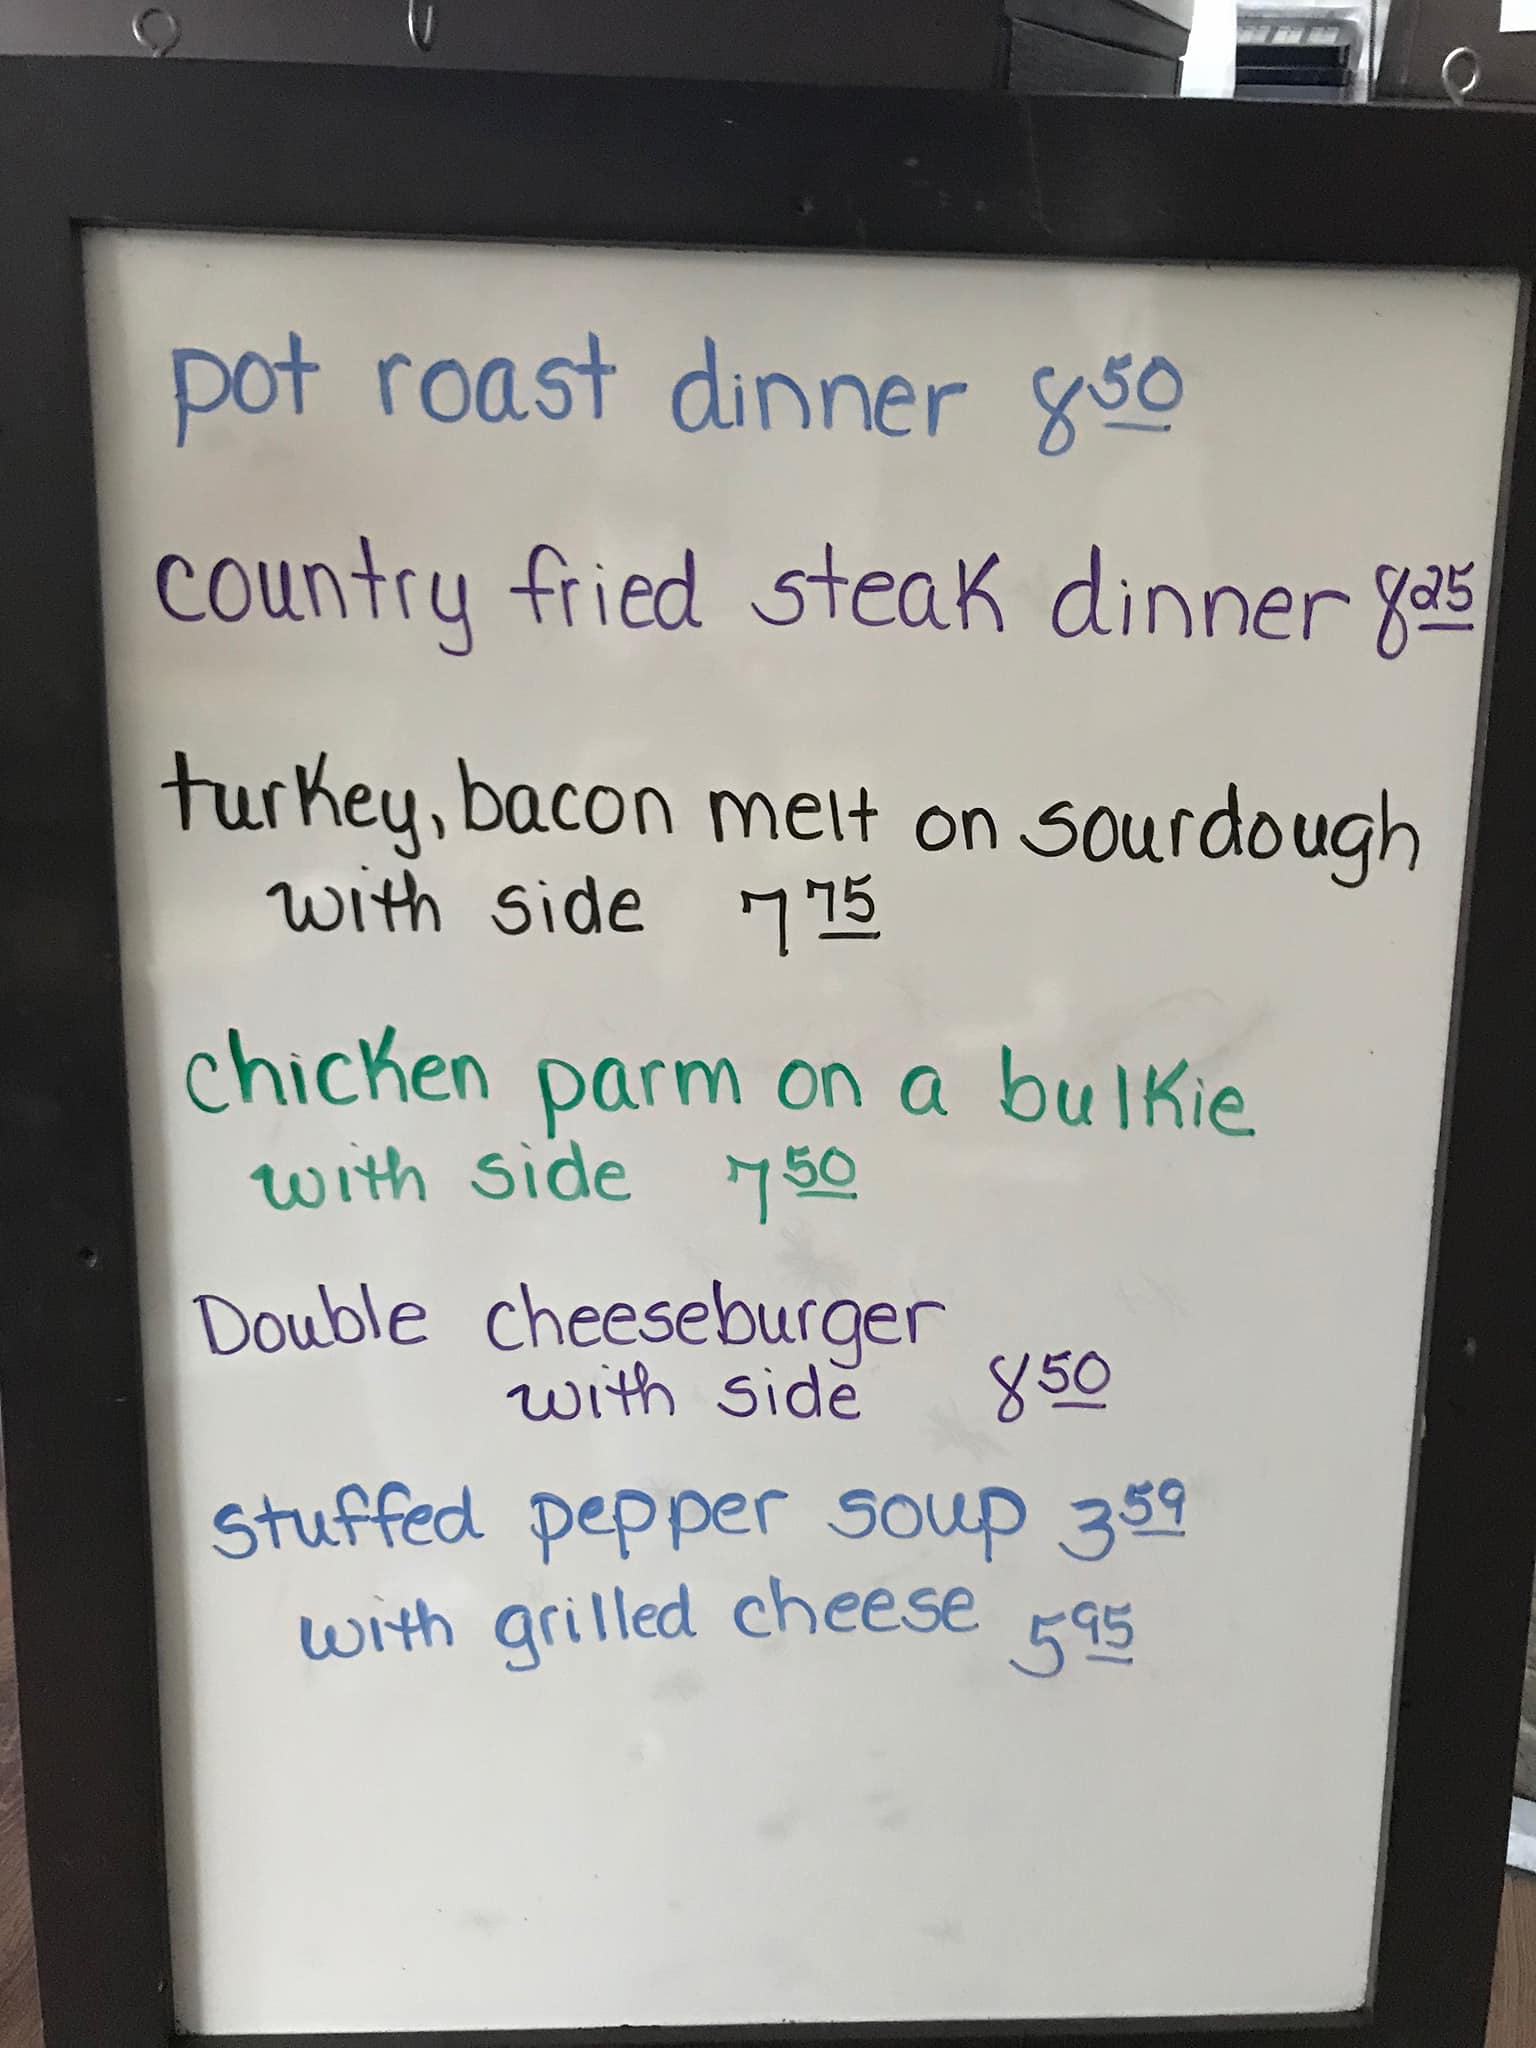 pot roast dinner 8 50
country fried steak dinner 8 25
turkey, bacon melt on sourdough
with side 7 75
chicken parm on a bulkie
with side 7 50
Double cheeseburger
with side 8 50
stuffed pepper soup 3 59
with grilled cheese 5 95